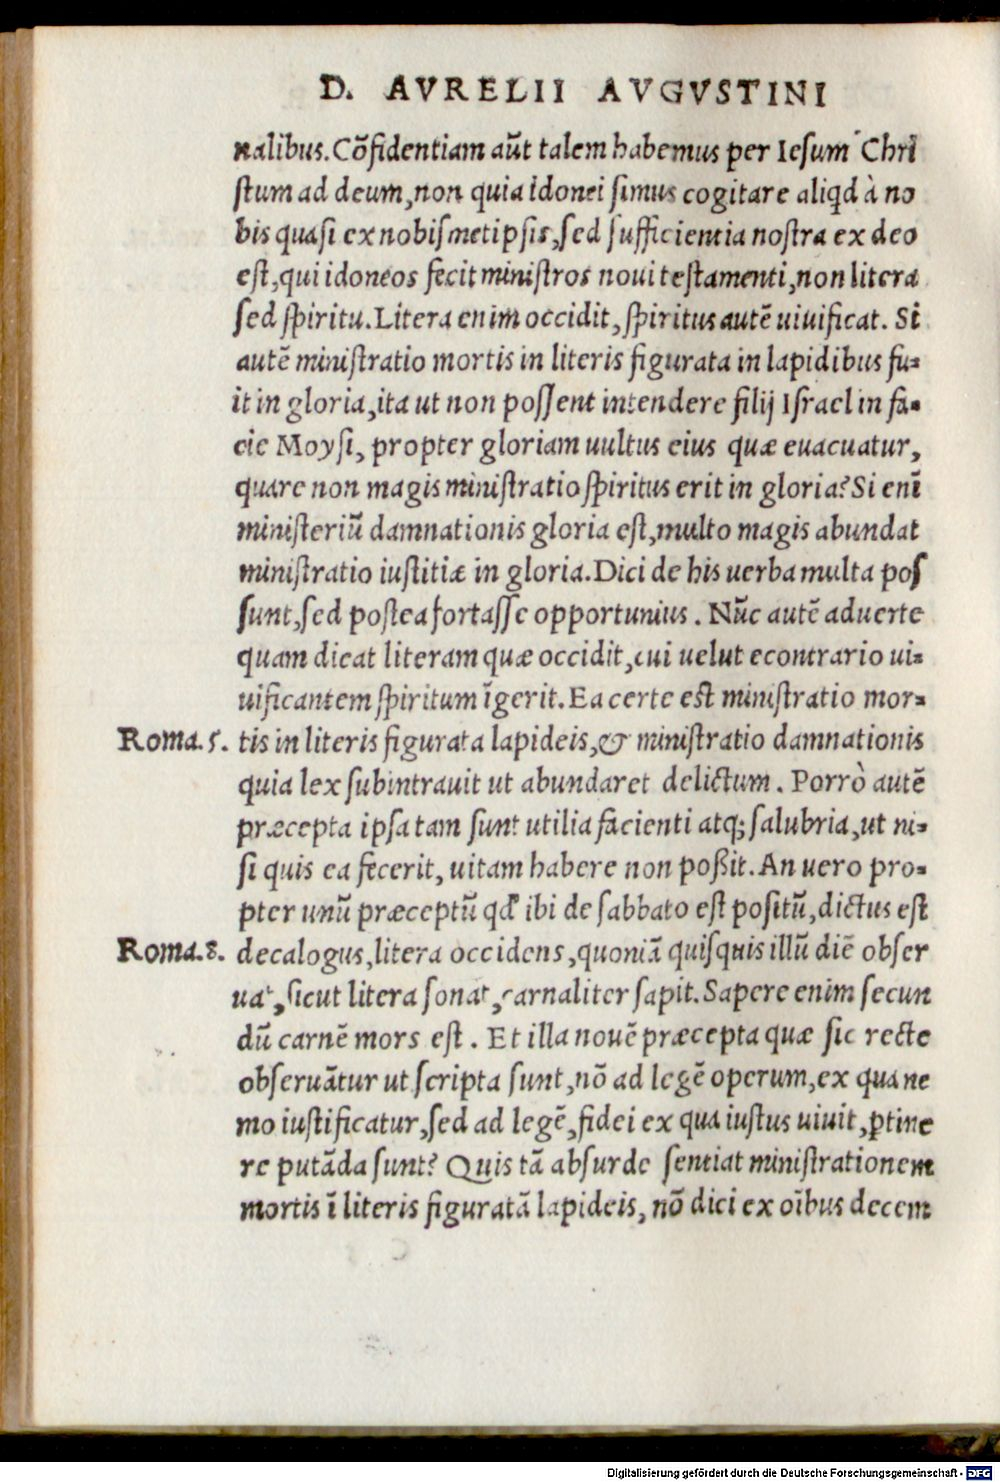 D. AVRELII AVGVSTINI
nalibus. Cõfidentiam aũt talem habemus per Iesum Chri
stum ad deum, non quia idonei simus cogitare aliqd à no
bis quasi ex nobismetipsis, sed sufficientia nostra ex deo
est, qui idoneos fecit ministros noui testamenti, non litera
sed spiritu. Litera enim occidit, spiritus autẽ uiuificat. Si
autẽ ministratio mortis in literis figurata in lapidibus fu=
it in gloria, ita ut non possent intendere filij Israel in fa=
cie Moysi, propter gloriam uultus eius quæ euacuatur,
quare non magis ministratio spiritus erit in gloria? Si enĩ
ministeriũ damnationis gloria est, multo magis abundat
ministratio iustitiæ in gloria. Dici de his uerba multa pos
sunt, sed postea fortasse opportunius. Nũc autẽ aduerte
quam dicat literam quæ occidit, cui uelut econtrario ui=
uificantem spiritum ĩgerit. Ea certe est ministratio mor=
Roma.5. tis in literis figurata lapideis, & ministratio damnationis
quia lex subintrauit ut abundaret delictum. Porrò autẽ
præcepta ipsa tam sunt utilia facienti atq; salubria, ut ni=
si quis ea fecerit, uitam habere non poßit. An uero pro=
pter unũ præceptũ qđ ibi de sabbato est positũ, dictus est
Roma.8. decalogus, litera occidens, quoniã quisquis illũ diẽ obser
uat, sicut litera sonat, carnaliter sapit. Sapere enim secun
dũ carnẽ mors est. Et illa nouẽ præcepta quæ sic recte
obseruãtur ut scripta sunt, nõ ad legẽ operum, ex qua ne
mo iustificatur, sed ad legẽ, fidei ex qua iustus uiuit, ꝑtine
re putãda sunt? Quis tã absurde sentiat ministrationem
mortis ĩ literis figuratã lapideis, nõ dici ex oĩbus decem
Digitalisierung gefördert durch die Deutsche Forschungsgemeinschaft - DFG